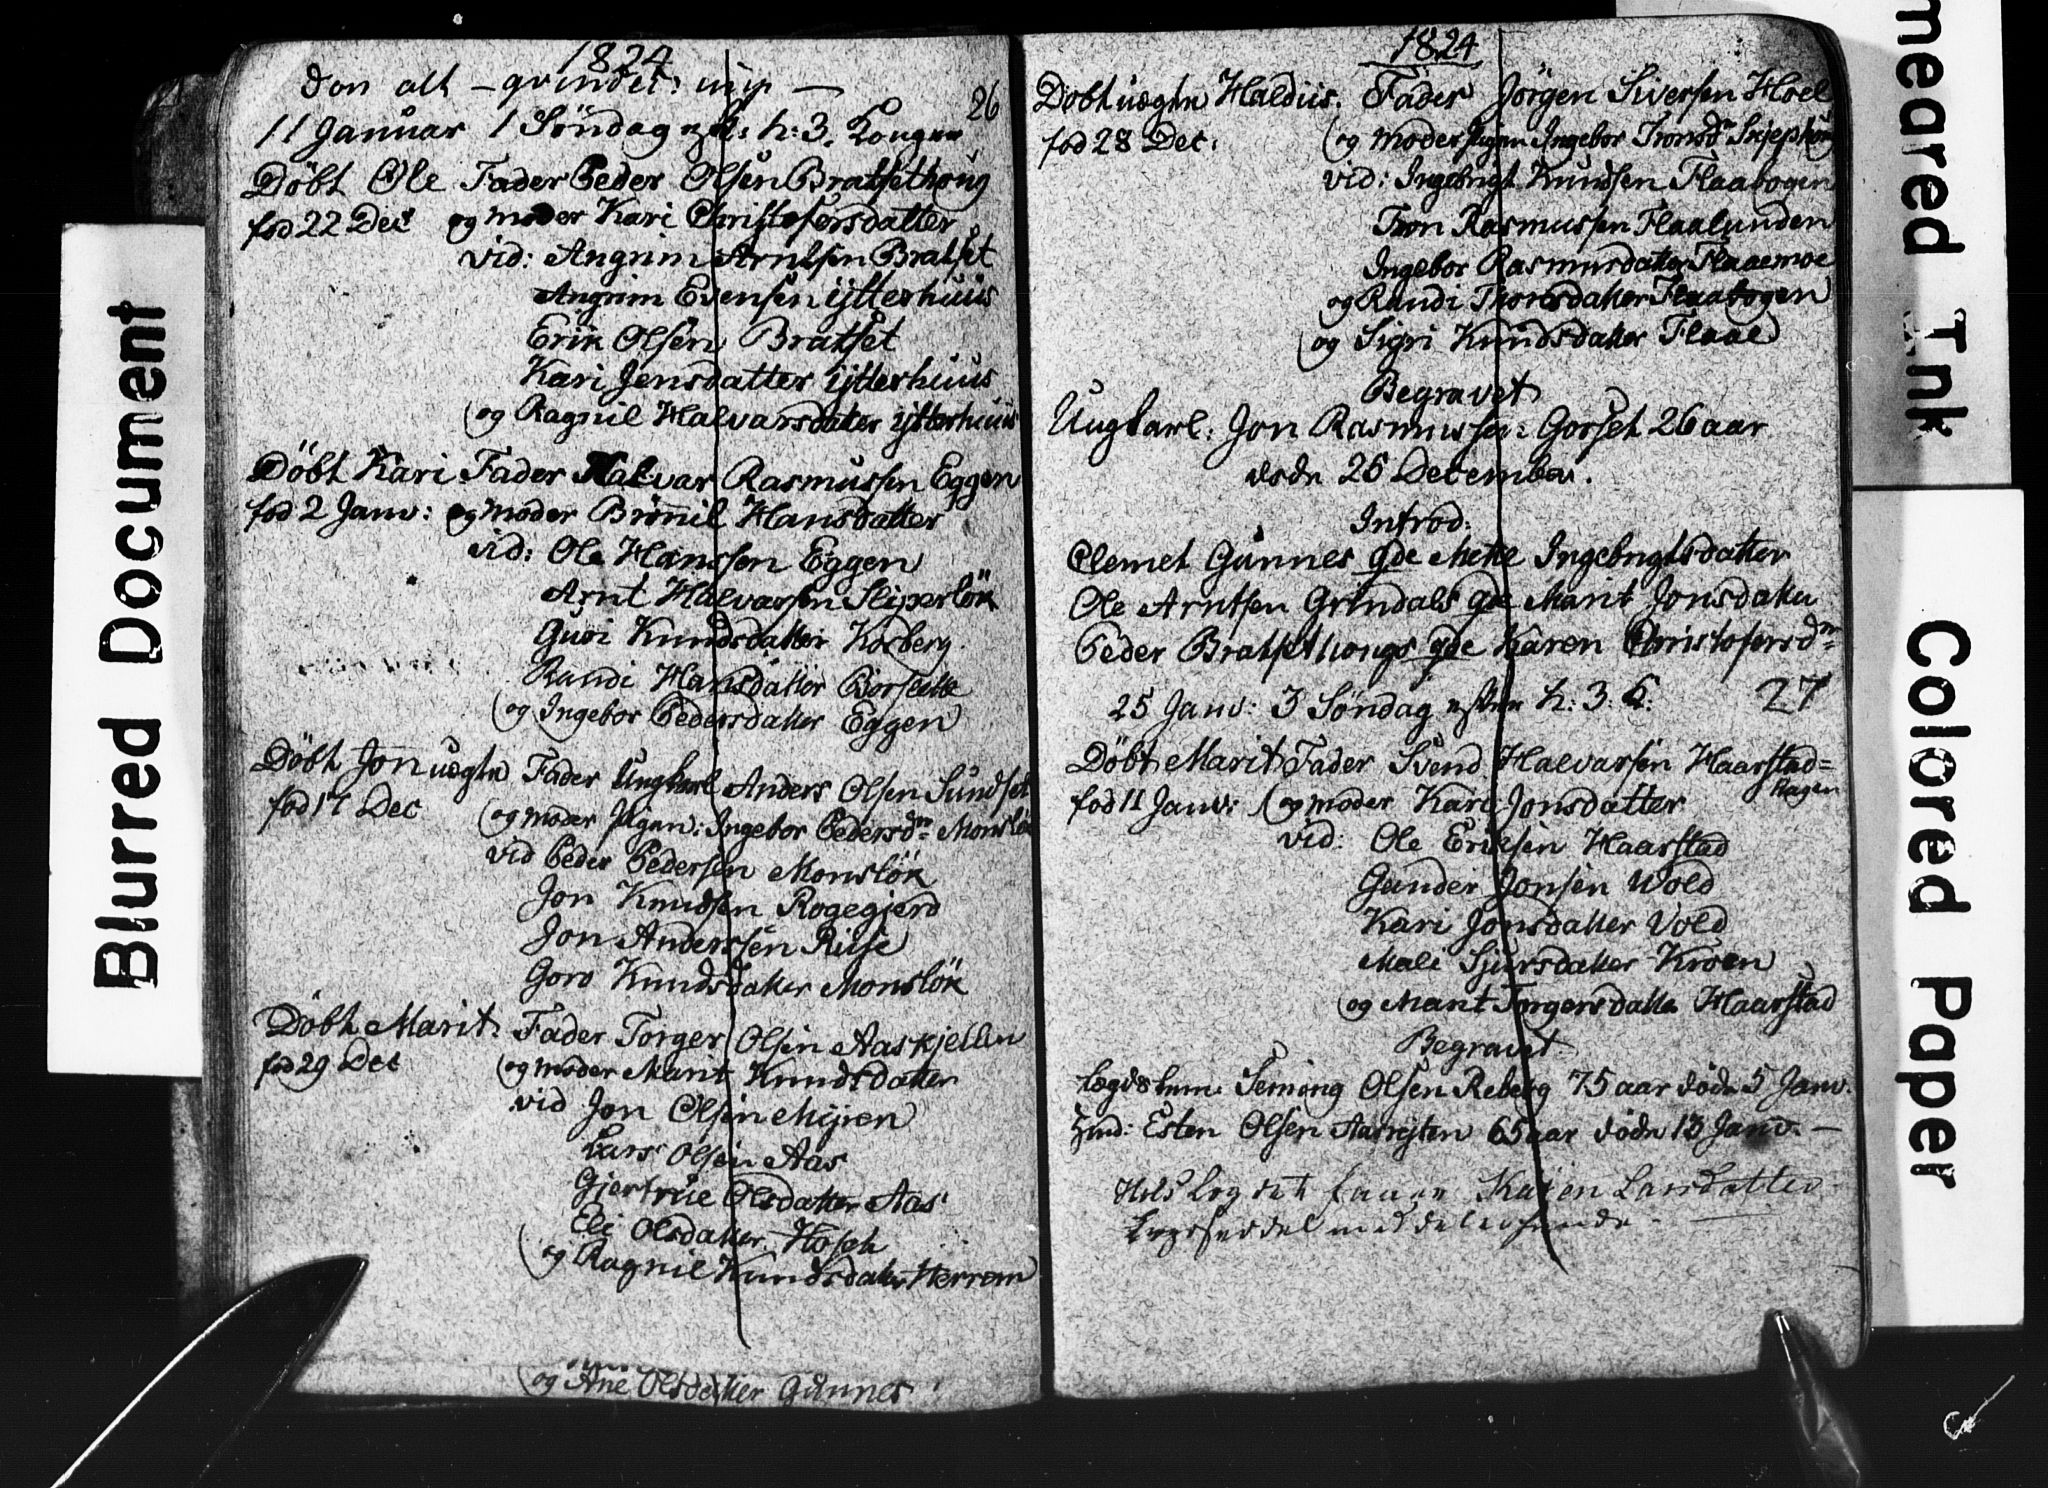 1824
26
11 Januar 1 Søndag h: 3. Konger
Døbt Ole Fader Peder Olsen Bratsethoug
fød 22 Dec og moder Kari Christofersdatter
vid: Angrim Arntsen Bratset
Angrim Evensen Ytterhuus
Erik Olsen Bratset
Kari Jensdatter Ytterhuus
og Ragnil Halvarsdatter Ytterhuus
Døbt Kari Fader Halvar Rasmussen Eggen
fød 2 Janv: og moder Brønnil Hansdatter
vid: Ole Hansson Eggen
Arnt Halvarsen Sliperløk
Guri Knudsdatter Kosberg
Randi Hansdatter Borsætte
og Ingebor Pedersdatter Eggen
Døbt Jon uægte Fader Ungkarl Anders Olsen Sundset
fød 17 Dec og moder pigen: Ingebor Pedersd:r Monsløk
vid Peder Pedersen Monsløk
Jon Knudsen Rogegjerd
Jon Anderssen Riise
Goro Knudsdatter Monsløk
Døbt Marit Fader Torger Olsen Aaskjellen
fød 29 Dec og moder Marit Knudtdatter
vid Jon Olsen Mjøen
Lars Olsen Aas
Gjertrue Olsdatter Aas
Eli Olsdatter Hoseth
og Ragnil Knudsdatter Herrem
og Ane Olsdatter Gunnes
1824
Døbt uægte Haldiis. Fader Jörgen Siversen Hoel
fød 28 Dec: og moder pigen Ingebor Tronsd:r Skjephoug
vid: Ingebrigt Knudsen Flaabogen
Tron Rasmussen Flaalunden
Ingebor Rasmusdatter Flaaemoe
og Randi Tronsdatter Flaabogen
og Sigri Knudsdatter Flaae
Begravet
Ungkarl: Jon Rasmussen Gorset 26 aar
døde 26 December.
Introd:
Clemet Gunnes gde Mette Ingebrigtsdatter
Ole Arntsen Grindals gde Marit Jonsdatter
Peder Bratsethougs gde Karen Christofersd:r
25 Janv: 3 Søndag efter h: 3: K: 27
Døbt Marit Fader Svend Halvarsen Haarstad=
hagen
fød 11 Janv: og moder Kari Jonsdatter
vid: Ole Eriksen Haarstad
Gunder Jonsen Wold
Kari Jonsdatter Vold
Mali Sjursdatter Kroen
og Marit Torgersdatter Haarstad
Begravet
Lægdslem: Seming Olsen Reberg 75 aar døde 5 Janv:
Esten Olsen 65 aar døde 13 Janv. —
Karen Larsdatter
Blurred Document
Smeared Ink
Colored Paper